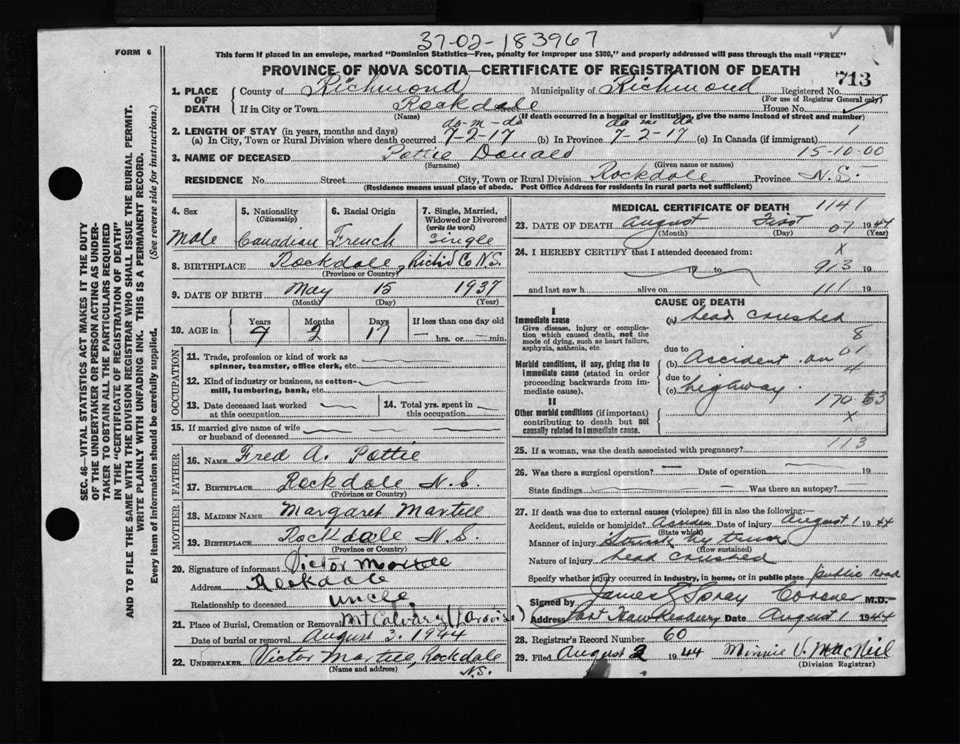 37-02-183967
FORM 6
This form if placed in an envelope, marked "Dominion Statistics—Free, penalty for improper use $300," and properly addressed will pass through the mail "FREE"
PROVINCE OF NOVA SCOTIA—CERTIFICATE OF REGISTRATION OF DEATH
713
1. PLACE OF DEATH
County of Richmond Municipality of Richmond Registered No.
(For use of Registrar General only)
If in City or Town Rockdale Street House No.
(Name) (If death occurred in a hospital or institution, give the name instead of street and number)
2. LENGTH OF STAY (in years, months and days)
(a) In City, Town or Rural Division where death occurred 7-2-17 (b) In Province 7-2-17 (c) In Canada (if immigrant) 1
3. NAME OF DECEASED Pottie Donald 15-10-00
(Surname) (Given name or names)
RESIDENCE No. Street City, Town or Rural Division Rockdale Province N.S.
(Residence means usual place of abode. Post Office Address for residents in rural parts not sufficient)
4. Sex Male
5. Nationality (Citizenship) Canadian
6. Racial Origin French
7. Single, Married, Widowed or Divorced (write the word) Single
8. BIRTHPLACE Rockdale, Richd Co N.S.
(Province or Country)
9. DATE OF BIRTH May 15 1937
(Month) (Day) (Year)
10. AGE in Years Months Days If less than one day old
7 2 17 — hrs. or — min.
OCCUPATION
11. Trade, profession or kind of work as spinner, teamster, office clerk, etc.
12. Kind of industry or business, as cotton-mill, lumbering, bank, etc.
13. Date deceased last worked at this occupation
14. Total yrs. spent in this occupation.
15. If married give name of wife or husband of deceased
FATHER
16. NAME Fred A. Pottie
17. BIRTHPLACE Rockdale N.S.
(Province or Country)
MOTHER
18. MAIDEN NAME Margaret Martell
19. BIRTHPLACE Rockdale N.S.
(Province or Country)
20. Signature of informant Victor Martell
Address Rockdale
Relationship to deceased uncle
21. Place of Burial, Cremation or Removal Mt Calvary
Date of burial or removal August 3. 1944
22. UNDERTAKER Victor Martell, Rockdale
(Name and address) N.S.
MEDICAL CERTIFICATE OF DEATH 1141
23. DATE OF DEATH August First 01 1944
(Month) (Day) (Year)
24. I HEREBY CERTIFY that I attended deceased from: X
19 to 913 19
and last saw h alive on 111 19
CAUSE OF DEATH
I
Immediate cause
Give disease, injury or complication which caused death, not the mode of dying, such as heart failure, asphyxia, asthenia, etc
(a) head crushed
8
Morbid conditions, if any, giving rise to immediate cause (stated in order proceeding backwards from immediate cause).
due to 01
(b) Accident on
4
due to
(c) highway. 170 63
II
Other morbid conditions (if important) contributing to death but not causally related to immediate cause.
X
113
25. If a woman, was the death associated with pregnancy?
26. Was there a surgical operation? — Date of operation 19
State findings Was there an autopsy?
27. If death was due to external causes (violence) fill in also the following:—
Accident, suicide or homicide? Date of injury August 1 1944
(State which)
Manner of injury Struck by truck
(How sustained)
Nature of injury head crushed
Specify whether injury occurred in industry, in home, or in public place public road
Signed by James Coroner M.D.
Address Date August 1 1944
28. Registrar's Record Number 60
29. Filed August 2 1944 Minnie V. MacNeil
(Division Registrar)
SEC. 46—VITAL STATISTICS ACT MAKES IT THE DUTY
OF THE UNDERTAKER OR PERSON ACTING AS UNDERTAKER
TO OBTAIN ALL THE PARTICULARS REQUIRED
IN THE "CERTIFICATE OF REGISTRATION OF DEATH"
AND TO FILE THE SAME WITH THE DIVISION REGISTRAR WHO SHALL ISSUE THE BURIAL PERMIT.
WRITE PLAINLY WITH UNFADING INK. THIS IS A PERMANENT RECORD.
Every item of information should be carefully supplied. (See reverse side for instructions.)